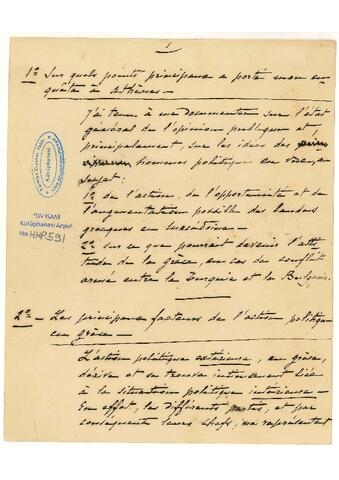 1
1º Sur quels points principaux a porté mon en-
quête à Athènes —
J'ai tenu à me documenter sur l'état
général de l'opinion publique et,
principalement, sur les idées des
hommes politique en vue, au
sujet:
1º de l'action, de l'opportunité et de
l'augmentation possible des bandes
grecques en Macédoine —
2º sur ce que pourrait devenir l'atti-
tude de la Grèce, en cas de conflit
armé entre la Turquie et la Bulgarie.
2º — Les principaux facteurs de l'action politique
en Grèce —
L'action politique extérieure, en Grèce,
dérive et se trouve intimement liée
à la situation politique intérieure —
En effet, les différents partis, et par
conséquent leurs chefs, ne représentent
Kütüphanesi
TDV İSAM
Kütüphanesi Arşivi
No HHP.591